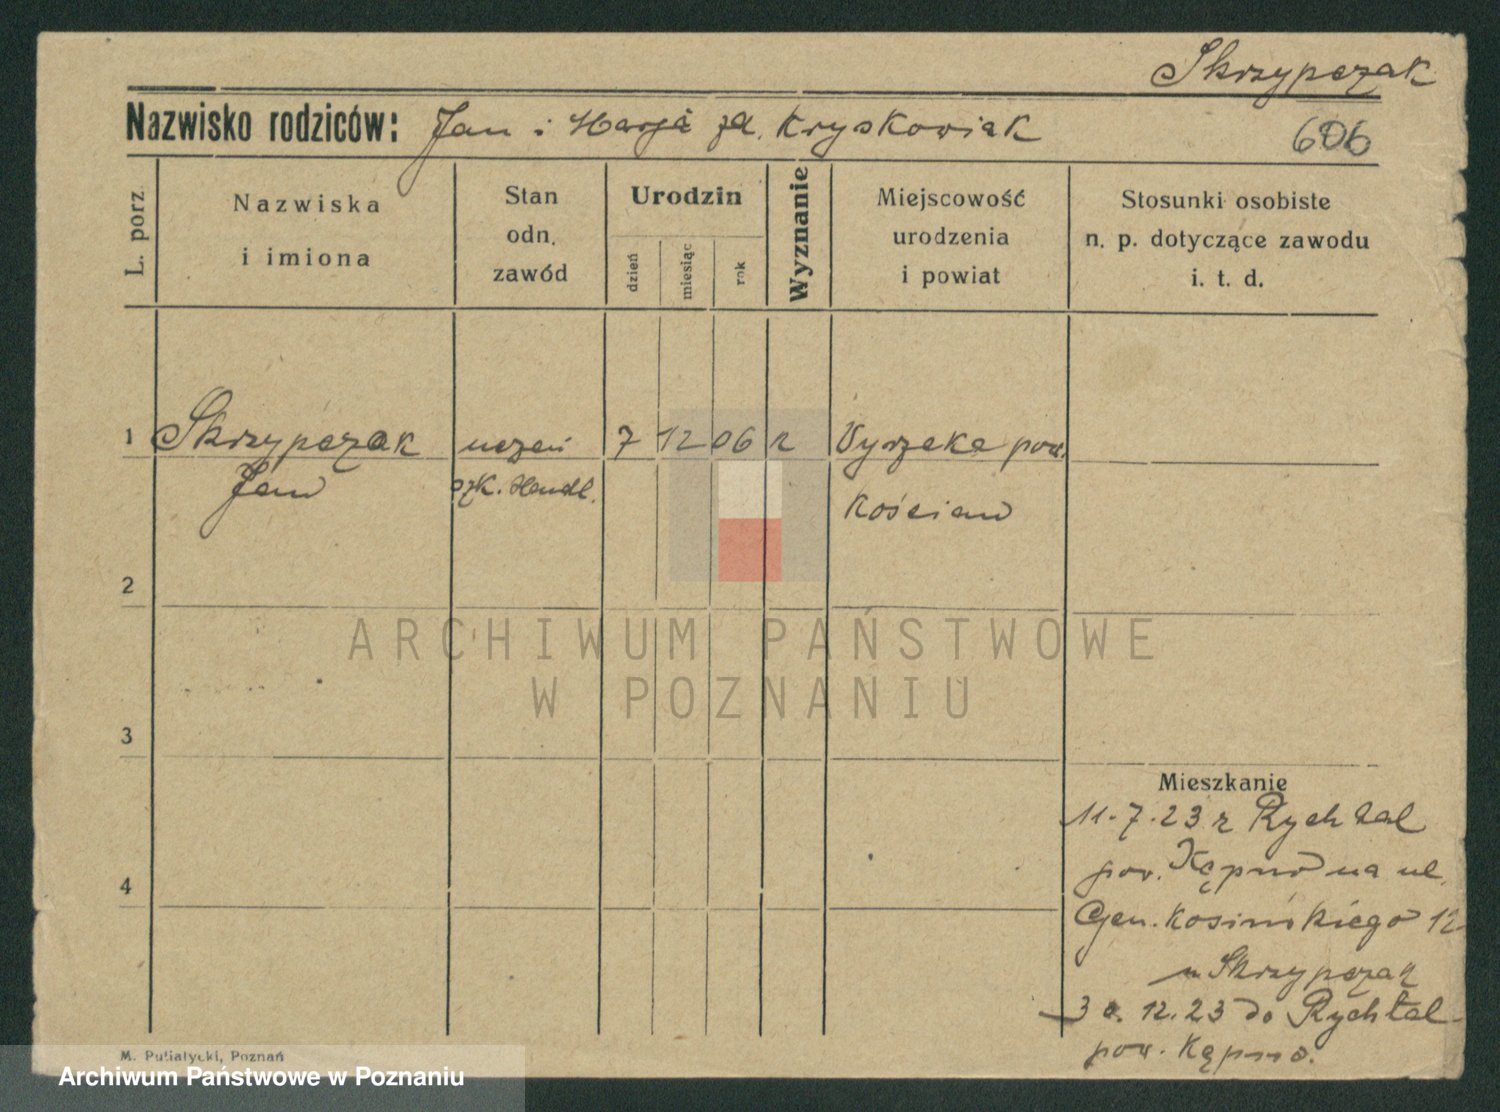 Skrzypczak
Nazwisko rodziców: Jan i Marja zd. Kryskowiak
606
L. porz.
Nazwiska
i imiona
Stan
odn.
zawód
Urodzin
dzień
miesiąc
rok
Wyznanie
Miejscowość
urodzenia
i powiat
Stosunki osobiste
n. p. dotyczące zawodu
i. t. d.
1 Skrzypczak uczeń 7 12 06 r Wyrzeka pow.
Jan szk. Handl. Kościan
2
ARCHIWUM PAŃSTWOWE
W POZNANIU
3
Mieszkanie
11.7.23 z Rychtal
pow. Kępno na ul.
4
Gen. Kosińskiego 12
u Skrzypczak
12.23 do Rychtal
pow. Kępno.
M. Putiatycki, Poznań
Archiwum Państwowe w Poznaniu